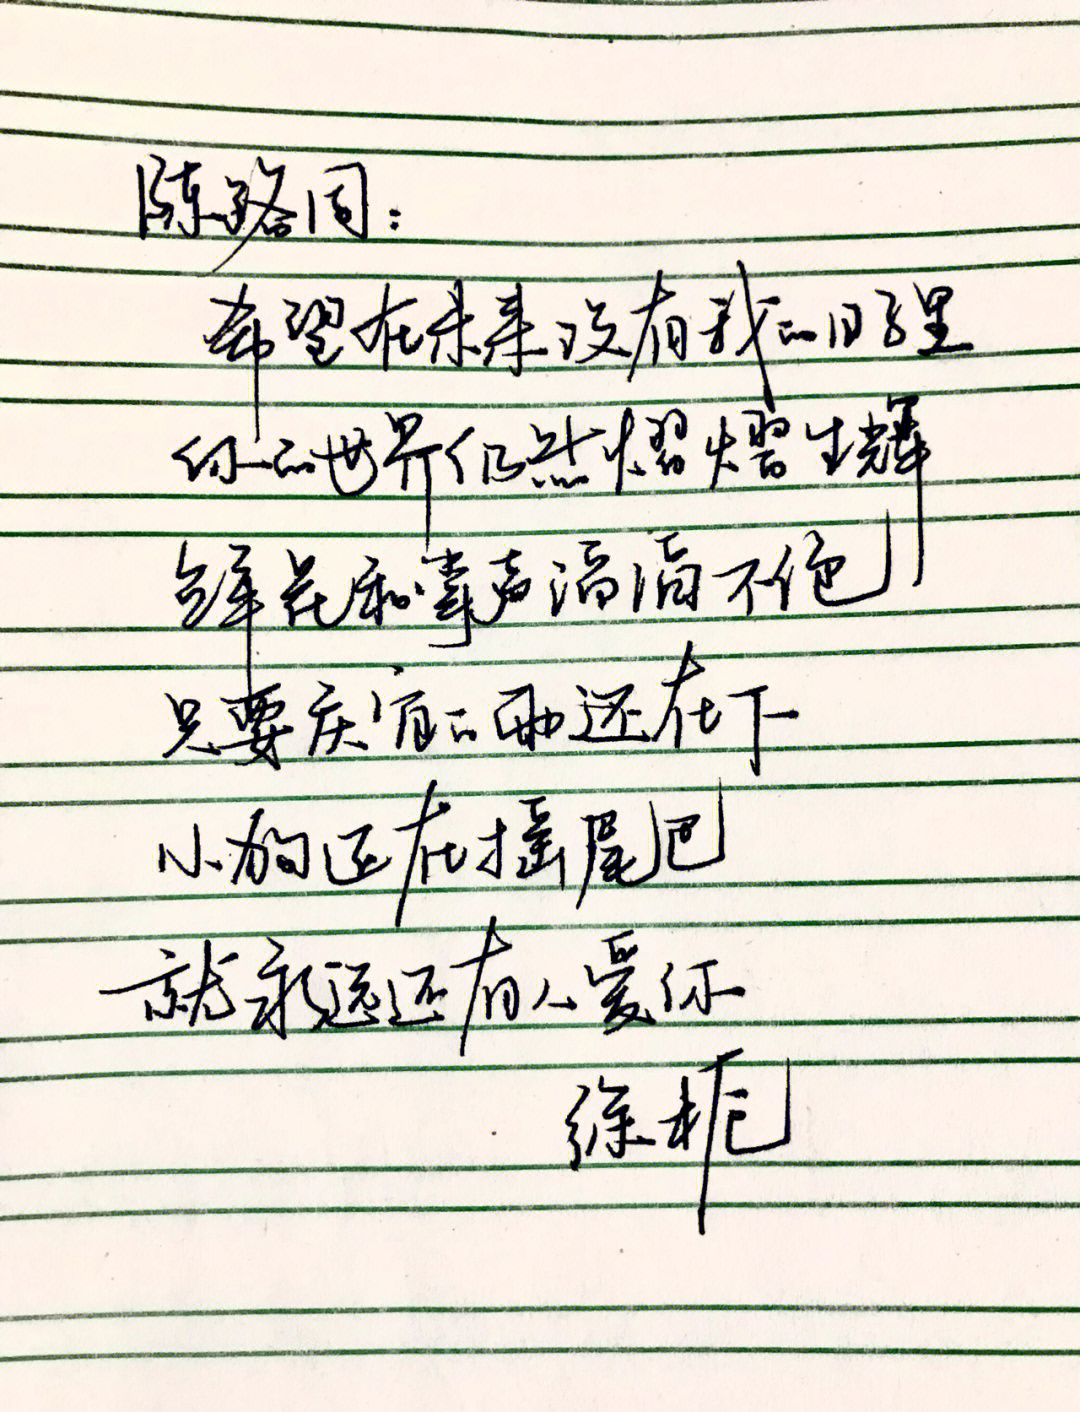 陈路周：
希望在未来没有我的日子里
你的世界仍然熠熠生辉
鲜花和掌声滔滔不绝
只要庆宜的雨还在下
小狗还在摇尾巴
就永远还有人爱你
徐栀